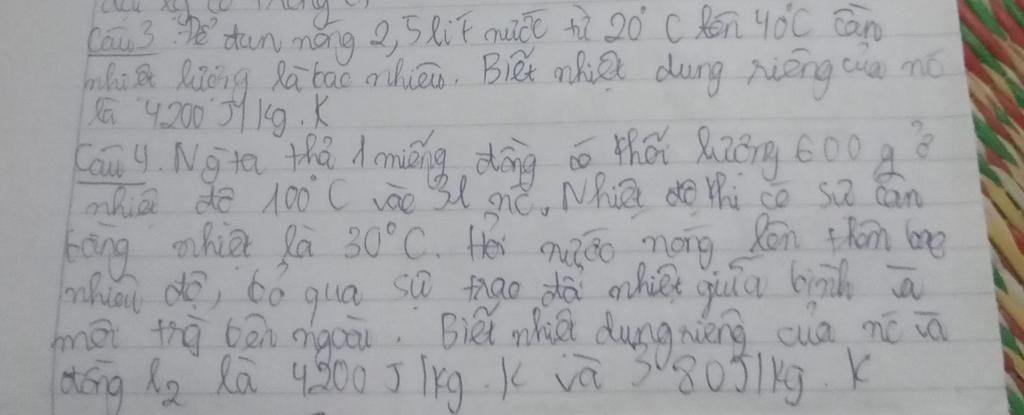 Câu 3. Để đun nóng 2,5 lít nước từ 20°C lên 40°C cần
nhiệt lượng là bao nhiêu. Biết nhiệt dung riêng của nc
là 4200 J/kg.K
Câu 4. Ng ta thả 1 miếng đồng có khối lượng 600 g ở
nhiệt độ 100°C vào 3l nc. Nhiệt độ khi có sự cân
bằng nhiệt là 30°C. Hỏi nước nóng lên thêm bao
nhiêu độ, bỏ qua sự trao đổi nhiệt giữa bình và
môi trg bên ngoài. Biết nhiệt dung riêng của nc và
đồng l2 là 4200 J/kg.K và 380J/kg.K